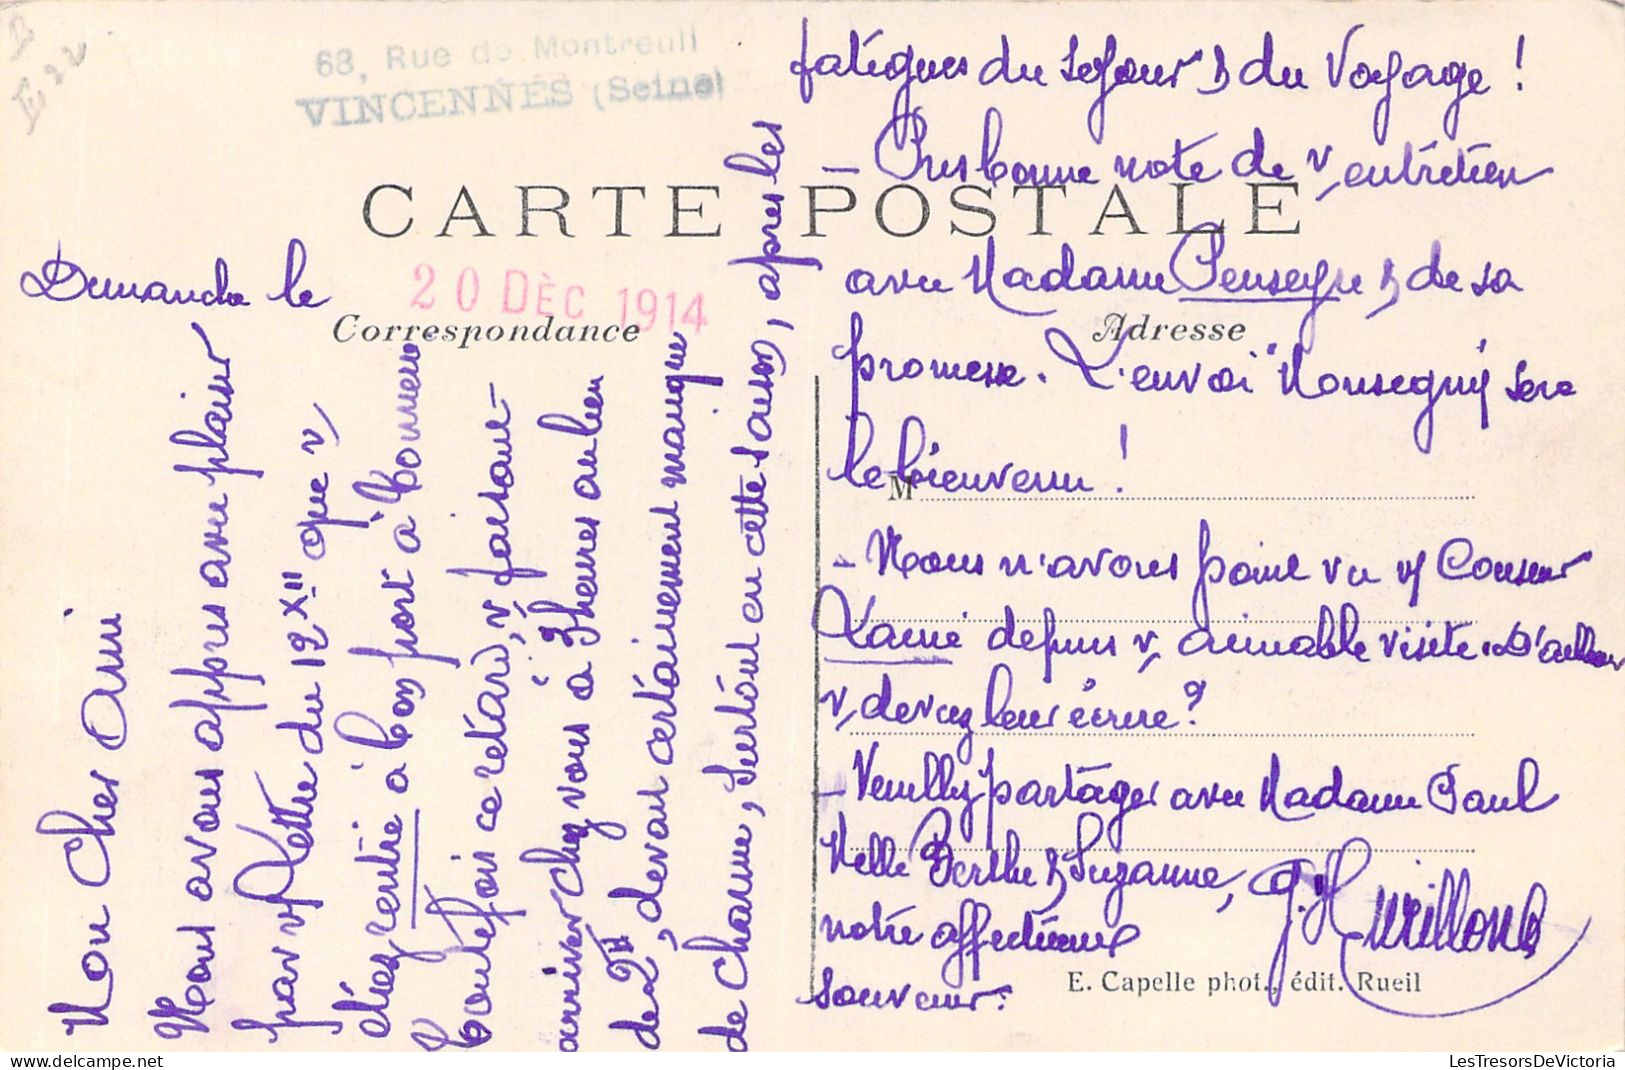 68, Rue de Montreuil
VINCENNES (Seine)
CARTE POSTALE
Dimanche le
20 DÈC 1914
Correspondance
Adresse
M
Mon Cher Ami
Nous avons appris avec plaisir
par v/ Lettre du 12 X" que v/
étiez rentré à bon port à
toutefois ce retard, v/ faisant
arriver chez vous à 3 heures au lieu
de 2, devait certainement manquer
de charme, surtout en cette saison, après les
fatigues du séjour & du Voyage !
– Pris bonne note de v/ entretien
avec Madame Penseyre & de sa
promesse. L'envoi Monseguy sera
le bienvenu !
– Nous n'avons point vu v/ Cousin
Lami depuis v/ aimable visite. D'ailleurs
v/ devez leur écrire ?
– Veuillez partager avec Madame Paul
Melle Berthe & Suzanne,
notre affectueux
souvenir.
E. Capelle phot., édit. Rueil
LesTresorsDeVictoria